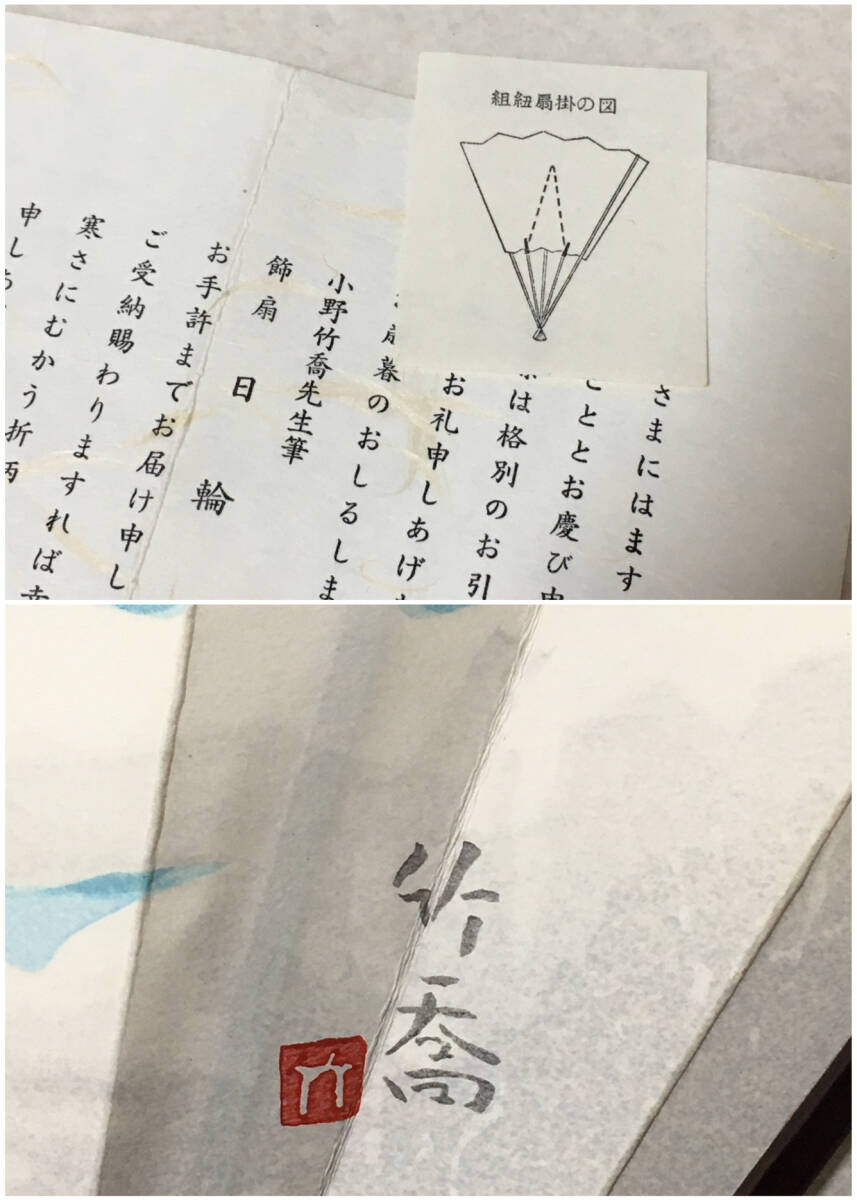 組紐扇掛の図
さまにはます
こととお慶び申
は格別のお引
お礼申しあげ
歳暮のおしるしま
小野竹喬先生筆
飾扇 日輪
お手許までお届け申し
ご受納賜わりますれば幸
寒さにむかう折柄
申しあ
竹喬
竹